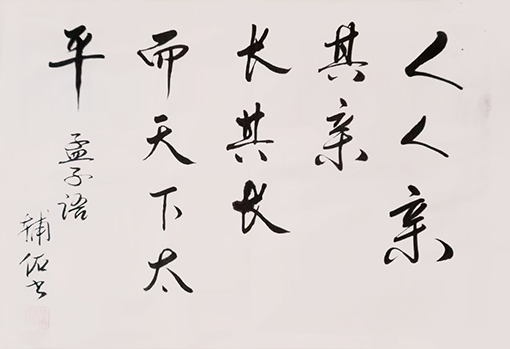 人人亲
其亲
长其长
而天下太
平
孟子语
辅佑书